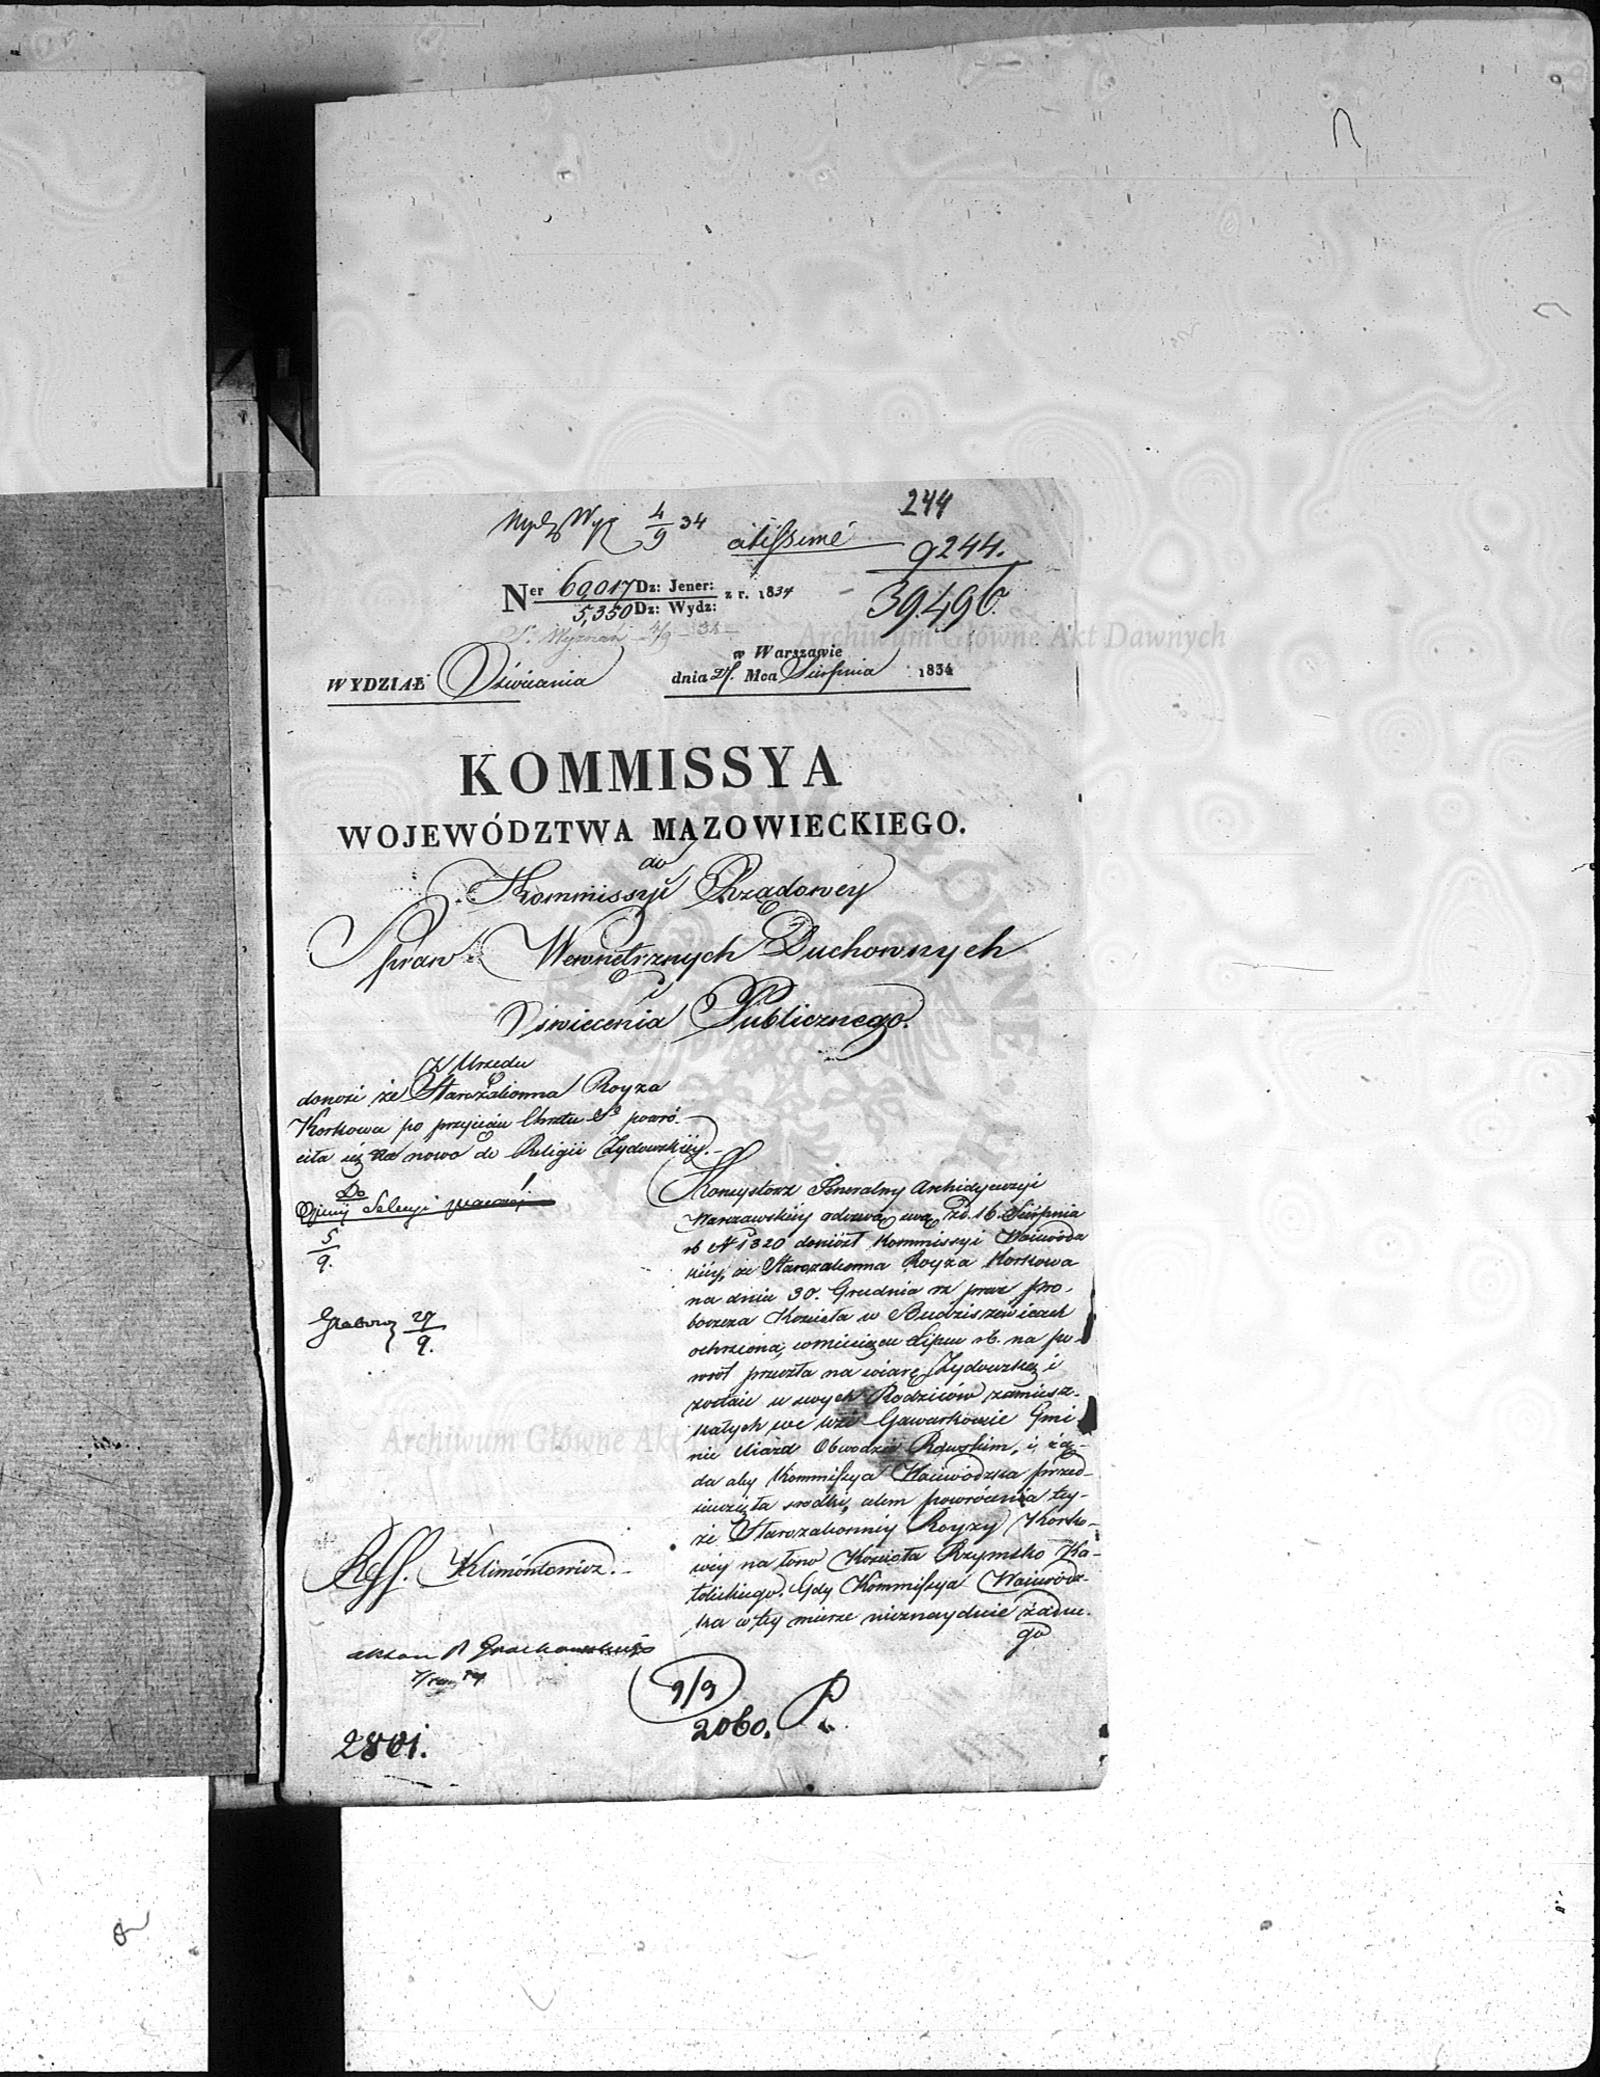 244
4/9 34
citissime
9244.
39.496.
Ner 60,017 Dz: Jener:
5,350 Dz: Wydz: z r. 1834
w Warszawie
WYDZIAŁ Oświecenia
dnia Mca Sierpnia 1834
KOMMISSYA
WOJEWÓDZTWA MAZOWIECKIEGO.
do
Kommissyi Rządowey
Spraw Wewnętrznych Duchownych
i
Oświecenia Publicznego.
Z Urzędu
donosi że Starozakonna Royza
Korkowa po przyjęciu Chrztu St powró-
ciła się na nowo do Religii Żydowskiey.
Do
5/9.
27/9.
Konsystorz Generalny Archidyecezyi
Warszawskiey odezwą swą z d. 16. Sierpnia
rb N 1320 doniósł Kommissyi Woiewódz
kiey, że Starozakonna Royza Korkowa
na dniu 30. Grudnia rz przez pro-
boszcza Kościoła w Budziszewicach
ochrzcona, w miesiącu Lipcu rb. na po-
wrót przeszła na wiarę Żydowską i
zostaie u swych Rodziców zamiesz-
kałych we wsi Gawarkowie Gmi
nie Uiazd Obwodzie Rawskim, i żą-
da aby Kommissya Woiewódzka przed-
sięwzięła srodki, celem powrócenia tey-
że Starozakonney Royzy Korko-
wey na łono Kościoła Rzymsko Ka-
tolickiego. Gdy Kommissya Woiewódz-
ka w tey mierze nieznayduie żadne-
go
Reff. Klimóntowicz.
9/9
2060.
2801.
Archiwum Główne Akt Dawnych
Archiwum Główne Akt